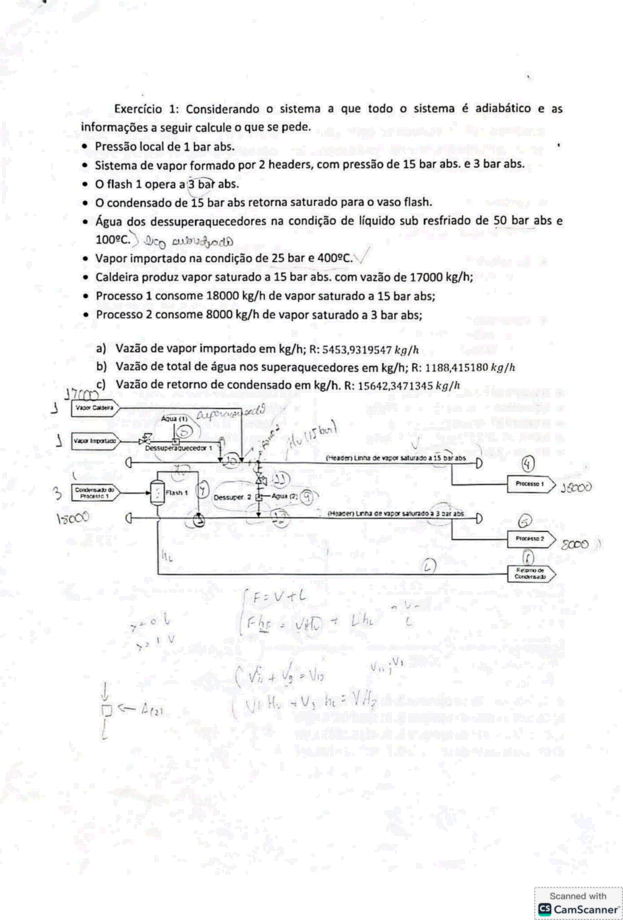 Exercício 1: Considerando o sistema a que todo o sistema é adiabático e as
informações a seguir calcule o que se pede.
• Pressão local de 1 bar abs.
• Sistema de vapor formado por 2 headers, com pressão de 15 bar abs. e 3 bar abs.
• O flash 1 opera a 3 bar abs.
• O condensado de 15 bar abs retorna saturado para o vaso flash.
• Água dos dessuperaquecedores na condição de líquido sub resfriado de 50 bar abs e
100ºC.
• Vapor importado na condição de 25 bar e 400ºC.
• Caldeira produz vapor saturado a 15 bar abs. com vazão de 17000 kg/h;
• Processo 1 consome 18000 kg/h de vapor saturado a 15 bar abs;
• Processo 2 consome 8000 kg/h de vapor saturado a 3 bar abs;
a) Vazão de vapor importado em kg/h; R: 5453,9319547 kg/h
b) Vazão de total de água nos superaquecedores em kg/h; R: 1188,415180 kg/h
c) Vazão de retorno de condensado em kg/h. R: 15642,3471345 kg/h
17000
Vapor Caldeira
Água (1)
Vapor Importado
Dessuperaquecedor 1
Hv (15 bar)
(Header) Linha de vapor saturado a 15 bar abs
4
Processo 1
18000
3
Condensado do
Processo 1
18000
Flash 1
Dessuper. 2
Água (2)
(Header) Linha de vapor saturado a 3 bar abs
Processo 2
8000
Retorno de
Condensado
hL
L
F = V + L
x = 0 L
x = 1 V
Scanned with
CS CamScanner